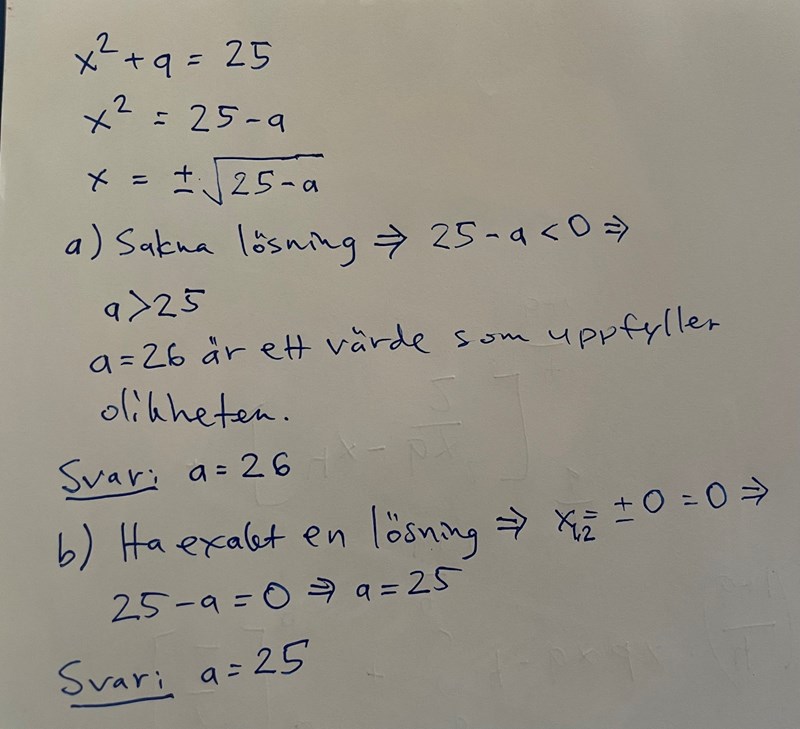 x² + a = 25
x² = 25 - a
x = ± √25-a
a) Sakna lösning ⇒ 25 - a < 0 ⇒
a > 25
a = 26 är ett värde som uppfyller
olikheten.
Svar: a = 26
b) Ha exakt en lösning ⇒ x₁,₂ = ± 0 = 0 ⇒
25 - a = 0 ⇒ a = 25
Svar: a = 25